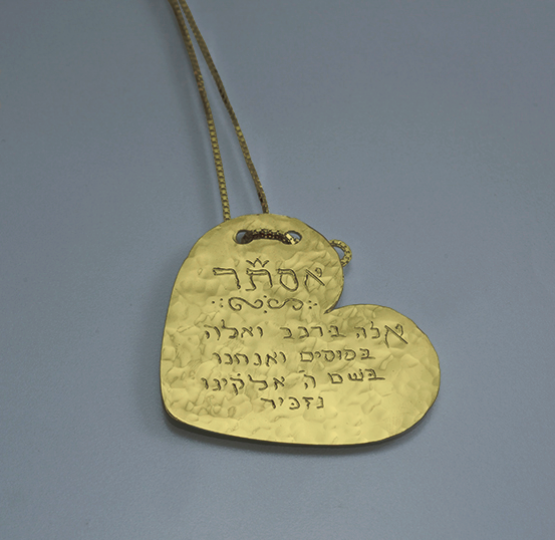 אסתר
אלה ברכב ואלה
בסוסים ואנחנו
בשם ה' אלקינו
נזכיר